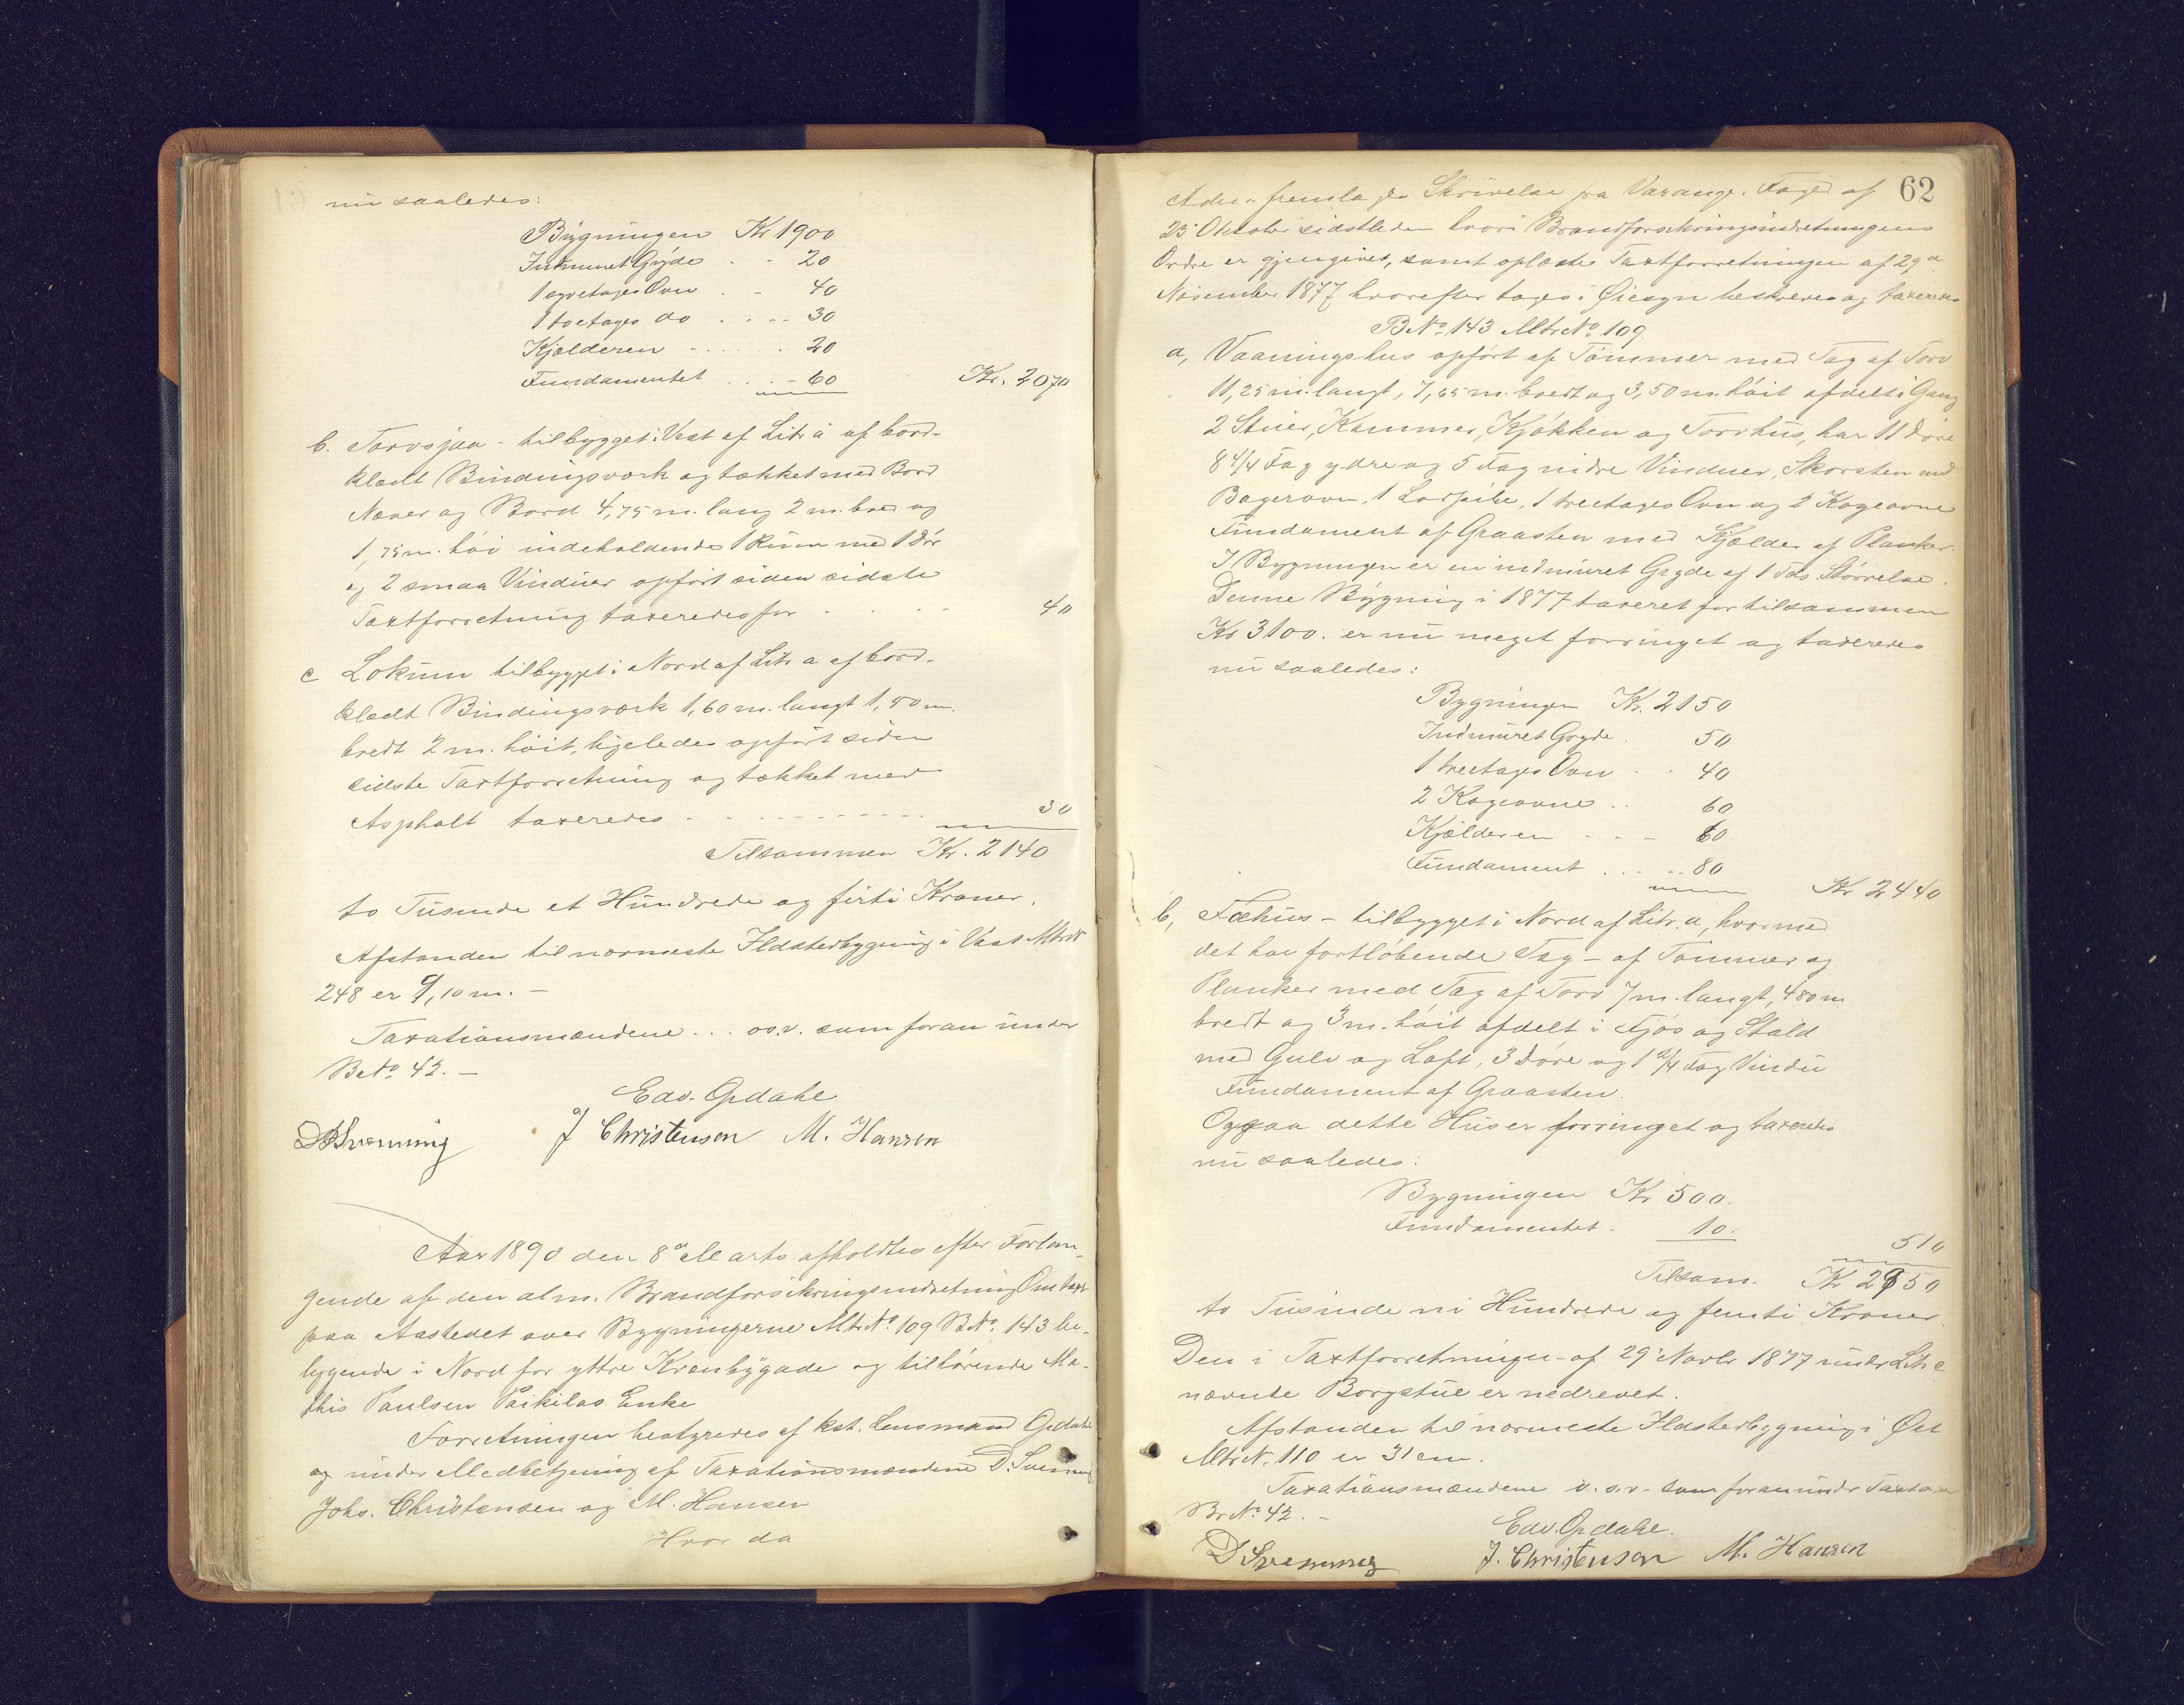 nu saaledes:
Bygningen Kr 1900
Indmuret Gryde . . 20
1 Ovn . - 40
1 toetages do . . . . 30
Kjælderen - . . . . . 20
Fundamentet . . . - 60 Kr. 2070
b. Torvsjaa - tilbygget i Vest af Litr a af bord-
klædt Bindingsværk og tækket med Bord
Næver og Bord 4,75 m. lang 2 m. bred og
1,75 m. høi indeholdende 1 Rum med 1 Dør
og 2 smaa Vinduer opført siden sidste
Taxtforretning taxeredes for . . . . 40
c Lokum tilbygget i Nord af Litr a af bord-
klædt Bindingsværk 1,60 m. langt 1,50 m.
bredt 2 m. høit, ligeledes opført siden
sidste Taxtforretning og tækket med
Asphalt taxeredes - - - - - - - - 30
Tilsammen Kr. 2140
to Tusinde et Hundrede og firti Kroner.
Afstanden til nærmeste Ildstedbygning i Vest Mtr N
248 er 9,10 m. -
Taxationsmændene . . . o.s.v. som foran under
B No 42. -
Edv. Opdahl
D Svenning J Christenson M. Hansen
Aar 1890 den 8de Marts afholdtes efter Forlan-
gende af den alm. Brandforsikringsindretning Omtaxt
paa Aastedet over Bygningerne Mtr No 109 B No. 143 be-
liggende i Nord for yttre Kvænbygade og tilhørende Ma-
this Paulsen Paikilas Enke
Forretningen bestyredes af kst. Lensmand Opdahl
og under Medbetjening af Taxationsmændene D. Svenning
Johs. Christensen og M. Hansen
Hvor da
62
Adm. fremlagde Skrivelse fra Varanger Fogd af
23 Oktober sidstleden hvori Brandforsikringsindretningens
Ordre er gjengivet, samt oplæste Taxtforretningen af 29de
November 1877 hvorefter toges i Øiesyn beskreves og taxeredes
B No. 143 Mtr No. 109
a, Vaaningshus opført af Tømmer med Tag af Torv
11,25 m. langt, 7,65 m. bredt og 3,50 m. høit afdelt i Gang
2 Stuer, Kammer, Kjøkken og Torvhus, har 11 Døre
8 4/4 Fag ydre og 5 Fag indre Vinduer, Skorsten med
Bagerovn, 1 Lodpibe, 1 treetages Ovn og 2 Kogeovne
Fundament af Graasten med Kjælder af Planker.
I Bygningen er en indmuret Gryde af 1 Tds. Størrelse.
Denne Bygning i 1877 taxeret for tilsammen
Kr 3100. er nu meget forringet og taxeredes
nu saaledes:
Bygningen Kr. 2150
Indmuret Gryde . 50
1 treetages Ovn . . 40
2 Kogeovne . . 60
Kjælderen - - - 60
Fundament . . . . . 80
Kr 2440
b, Fæhus - tilbygget i Nord af Litr. a, hvormed
det har fortløbende Tag - af Tømmer og
Planker med Tag af Torv 7 m. langt, 4,80 m
bredt og 3 m. høit afdelt i Fjøs og Stald
med Gulv og Loft, 3 Døre og 1 2/4 Fag Vindu
Fundament af Graasten.
Ogsaa dette Hus er forringet og taxeredes
nu saaledes:
Bygningen Kr 500.
Fundamentet . 10.
510
Tilsam. Kr 2950
to Tusinde ni Hundrede og femti Kroner.
Den i Taxtforretningen af 29' Novbr 1877 under Litr c
nævnte Borgstue er nedrevet.
Afstanden til nærmeste Ildstedbygning i Øst
Mtr N. 110 er 31 cm.
Taxationsmændene o.s.v. som foran under Taxten
Br No 42. -
Edv. Opdahl.
D Svenning J. Christenson M. Hansen